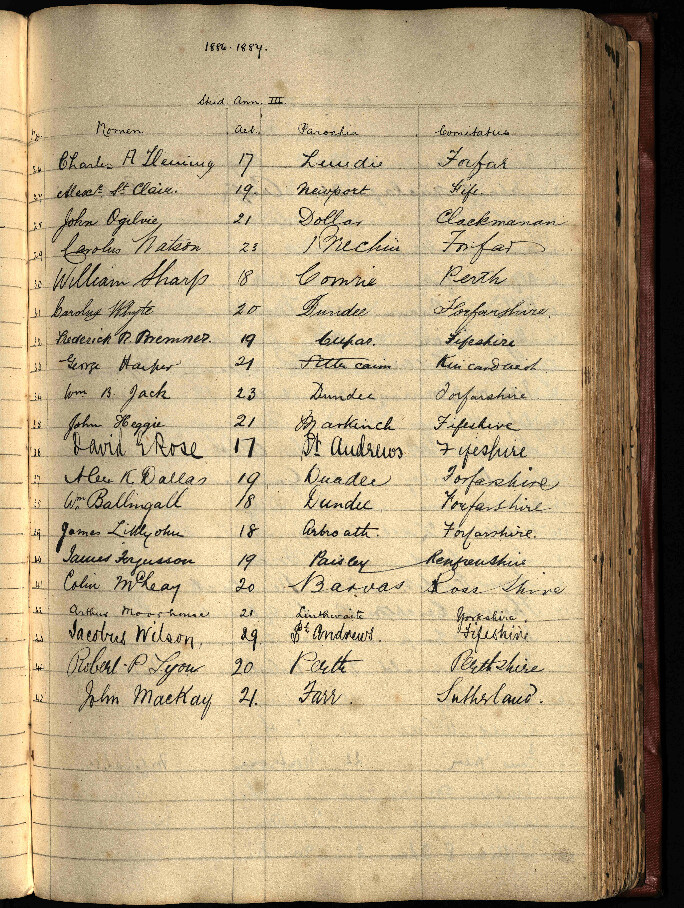 1886-1887.
Stud. Ann. III.
No. Nomen. Aet. Parochia Comitatus
26 Charles A Fleming 17 Lundie Forfar
27 Alexr. St Clair. 19. Newport Fife.
28 John Ogilvie 21 Dollar Clackmanan
29 Carolus Watson 23 Forfar
30 William Sharp 18 Comrie Perth
31 Carolus Whyte 20 Dundee Forfarshire.
32 Roderick R. Bremner. 19 Cupar. Fifeshire
33 George Harper 21 Fettercairn Kincardinesh
34 Wm B. Jack 23 Dundee Forfarshire
35 John Heggie 21 Markinch Fifeshire
36 David E Rose 17 St Andrews Fifeshire
37 Alex K Dallas 19 Dundee Forfarshire
38 Wm Ballingall 18 Dundee Forfarshire
39 James Littlejohn 18 Arbroath. Forfarshire.
40 James Fergusson 19 Paisley Renfrewshire
41 Colin McLeay 20 Barvas Ross Shire
42 Arthur Moorhouse 21 Linthwaite Yorkshire
43 Jacobus Wilson, 29 St Andrews. Fifeshire
44 Robert P Lyon 20 Perth Perthshire
45 John MacKay 21. Farr. Sutherland.